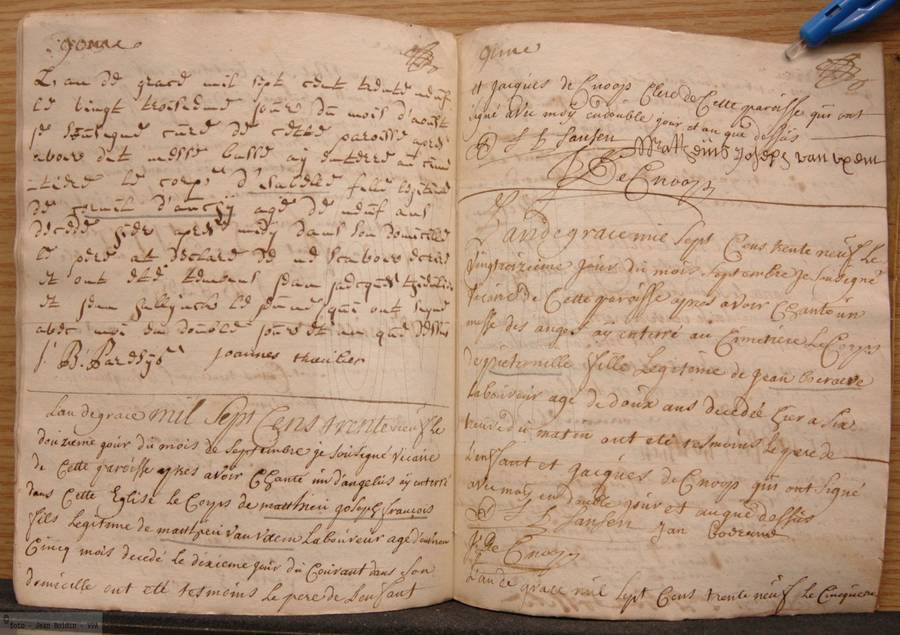 L'an de grace mil sept cent trente neuf
le vingt troisieme jour du mois d'aoust
je soussigné curé de cette paroisse apres
avoir dit messe basse aÿ enterré au cime
-tiere le corps d'Isabelle fille legitime
de d'aucÿ agé de neuf ans
decedé hier apres midy dans son domicille
le pere at declaré de ne scavoir ecrire
et ont été temoins jean jacques
et jean le jeune qui ont signé
avec moi en double jour et an que dessus
joannes theulier
L'an de grace mil sept Cens trente neuf le
douzieme jour du mois de septembre je sousigné vicaire
de Cette paroisse apres avoir Chanté un d'angelis aÿ enterré
dans Cette Eglise Le Corps de matthieu joseph francois
fils Legitime de matthieu van uxem Laboureur age d'environ
Cinq mois decedé le dixieme jour du Courant dans son
domicille ont eté tesmoins Le pere de L'enfant
et jacques de Cnoop Clerc de Cette paroisse qui ont
signé avec moy en double jour et an que dessus
J L Jansen Mattheus Joseph van uxem
De Cnoop
L'an de grace mil sept Cens trente neuf Le
jour du mois septembre je sousigné
vicaire de Cette paroisse apres avoir Chanté un
messe des anges aÿ enterré au Cimetiere Le Corps
de fille Legitime de jean
laboureur age de doux ans decedée hier a six
heures du matin ont eté tesmoins Le pere de
L'enfant et jacques de Cnoop qui ont signé
avec moy en double jour et an que dessus
J L Jansen Jan
De Cnoop
L'an de grace mil sept Cens trente neuf Le Cinquieme
foto - Jean Boidin - VVA